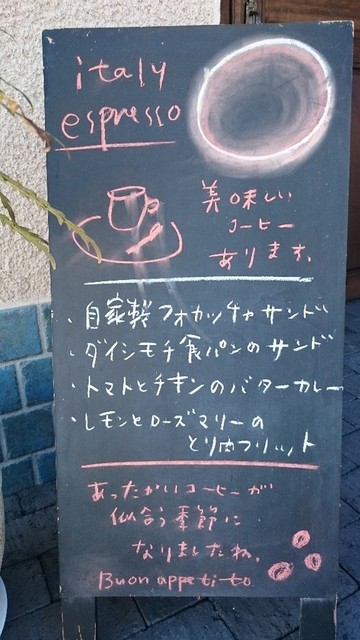 italy
espresso
美味しい
コーヒー
あります。
・自家製フォカッチャサンド
・ダイシモチ食パンのサンド
・トマトとチキンのバターカレー
・レモンとローズマリーの
とり肉フリット
あったかいコーヒーが
似合う季節に
なりましたね。
Buon appetito